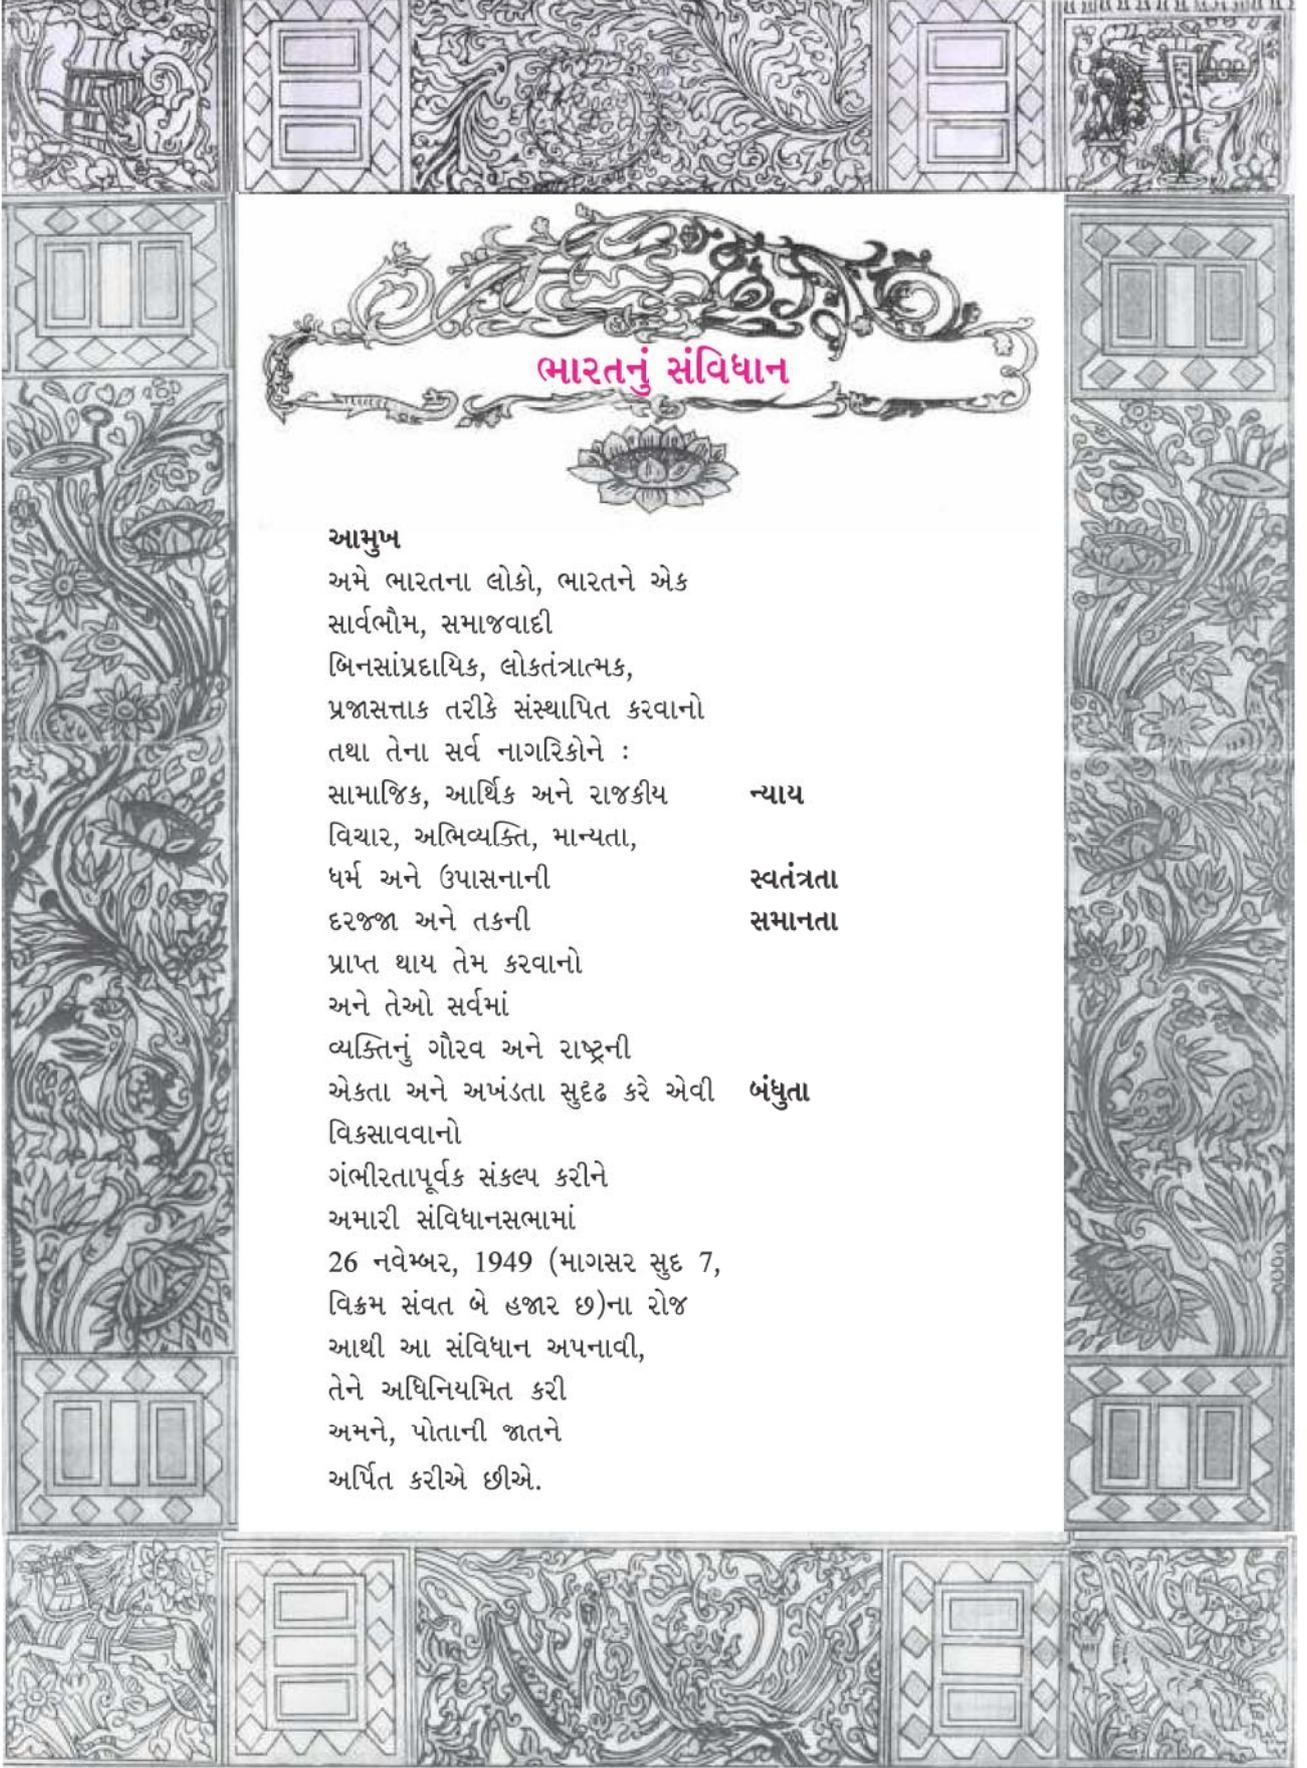 ભારતનું સંવિધાન
આમુખ
અમે ભારતના લોકો, ભારતને એક
સાર્વભૌમ, સમાજવાદી
બિનસાંપ્રદાયિક, લોકતંત્રાત્મક,
પ્રજાસત્તાક તરીકે સંસ્થાપિત કરવાનો
તથા તેના સર્વ નાગરિકોને :
સામાજિક, આર્થિક અને રાજકીય ન્યાય
વિચાર, અભિવ્યક્તિ, માન્યતા,
ધર્મ અને ઉપાસનાની સ્વતંત્રતા
દરજ્જા અને તકની સમાનતા
પ્રાપ્ત થાય તેમ કરવાનો
અને તેઓ સર્વમાં
વ્યક્તિનું ગૌરવ અને રાષ્ટ્રની
એકતા અને અખંડતા સુદૃઢ કરે એવી બંધુતા
વિકસાવવાનો
ગંભીરતાપૂર્વક સંકલ્પ કરીને
અમારી સંવિધાનસભામાં
26 નવેમ્બર, 1949 (માગસર સુદ 7,
વિક્રમ સંવત બે હજાર છ)ના રોજ
આથી આ સંવિધાન અપનાવી,
તેને અધિનિયમિત કરી
અમને, પોતાની જાતને
અર્પિત કરીએ છીએ.